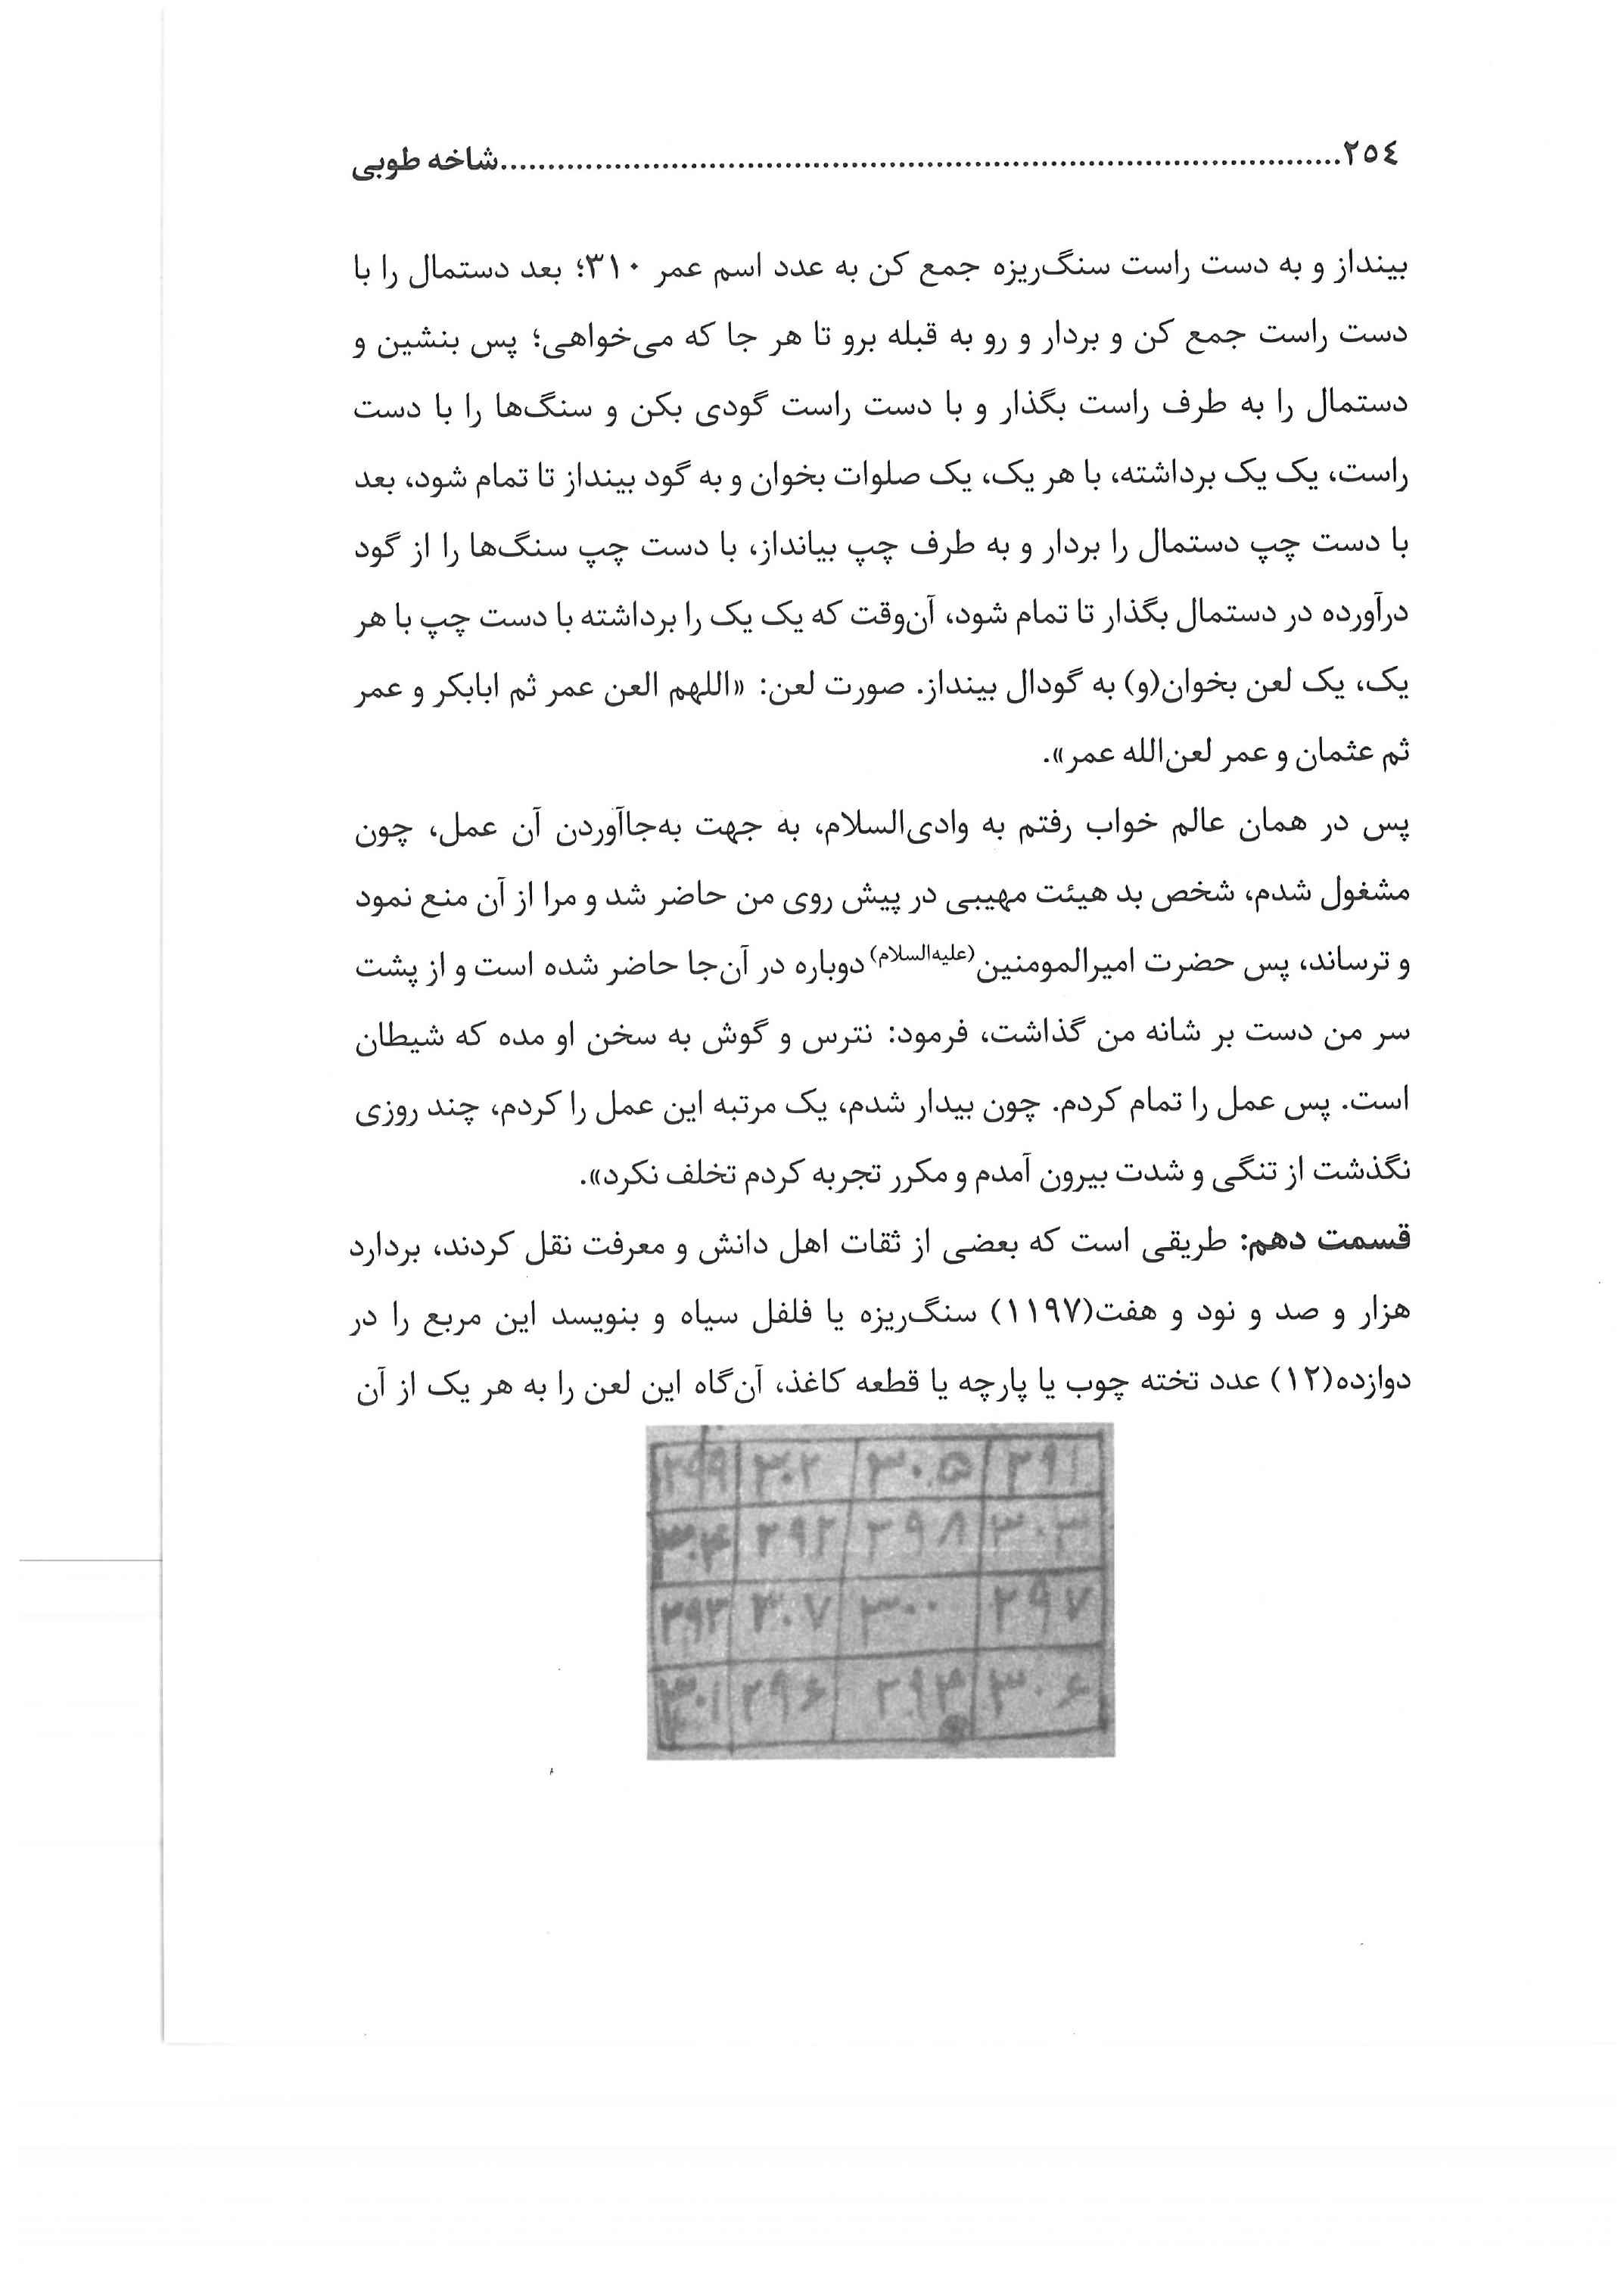 ٢٥٤........................................................................................شاخه طوبی
بینداز و به دست راست سنگ‌ریزه جمع کن به عدد اسم عمر ۳۱۰؛ بعد دستمال را با
دست راست جمع کن و بردار و رو به قبله برو تا هر جا که می‌خواهی؛ پس بنشین و
دستمال را به طرف راست بگذار و با دست راست گودی بکن و سنگ‌ها را با دست
راست، یک یک برداشته، با هر یک، یک صلوات بخوان و به گود بینداز تا تمام شود، بعد
با دست چپ دستمال را بردار و به طرف چپ بیانداز، با دست چپ سنگ‌ها را از گود
درآورده در دستمال بگذار تا تمام شود، آن‌وقت که یک یک را برداشته با دست چپ با هر
یک، یک لعن بخوان(و) به گودال بینداز. صورت لعن: «اللهم العن عمر ثم ابابکر و عمر
ثم عثمان و عمر لعن‌الله عمر».
پس در همان عالم خواب رفتم به وادی‌السلام، به جهت به‌جاآوردن آن عمل، چون
مشغول شدم، شخص بد هیئت مهیبی در پیش روی من حاضر شد و مرا از آن منع نمود
و ترساند، پس حضرت امیرالمومنین(علیه‌السلام) دوباره در آن‌جا حاضر شده است و از پشت
سر من دست بر شانه من گذاشت، فرمود: نترس و گوش به سخن او مده که شیطان
است. پس عمل را تمام کردم. چون بیدار شدم، یک مرتبه این عمل را کردم، چند روزی
نگذشت از تنگی و شدت بیرون آمدم و مکرر تجربه کردم تخلف نکرد».
قسمت دهم: طریقی است که بعضی از ثقات اهل دانش و معرفت نقل کردند، بردارد
هزار و صد و نود و هفت(۱۱۹۷) سنگ‌ریزه یا فلفل سیاه و بنویسد این مربع را در
دوازده(۱۲) عدد تخته چوب یا پارچه یا قطعه کاغذ، آن‌گاه این لعن را به هر یک از آن
۲۹۹ ۳۰۲ ۳۰۵ ۲۹۱
۳۰۴ ۲۹۲ ۲۹۸ ۳۰۳
۲۹۳ ۳۰۷ ۳۰۰ ۲۹۷
۳۰۱ ۲۹۶ ۲۹۴ ۳۰۶